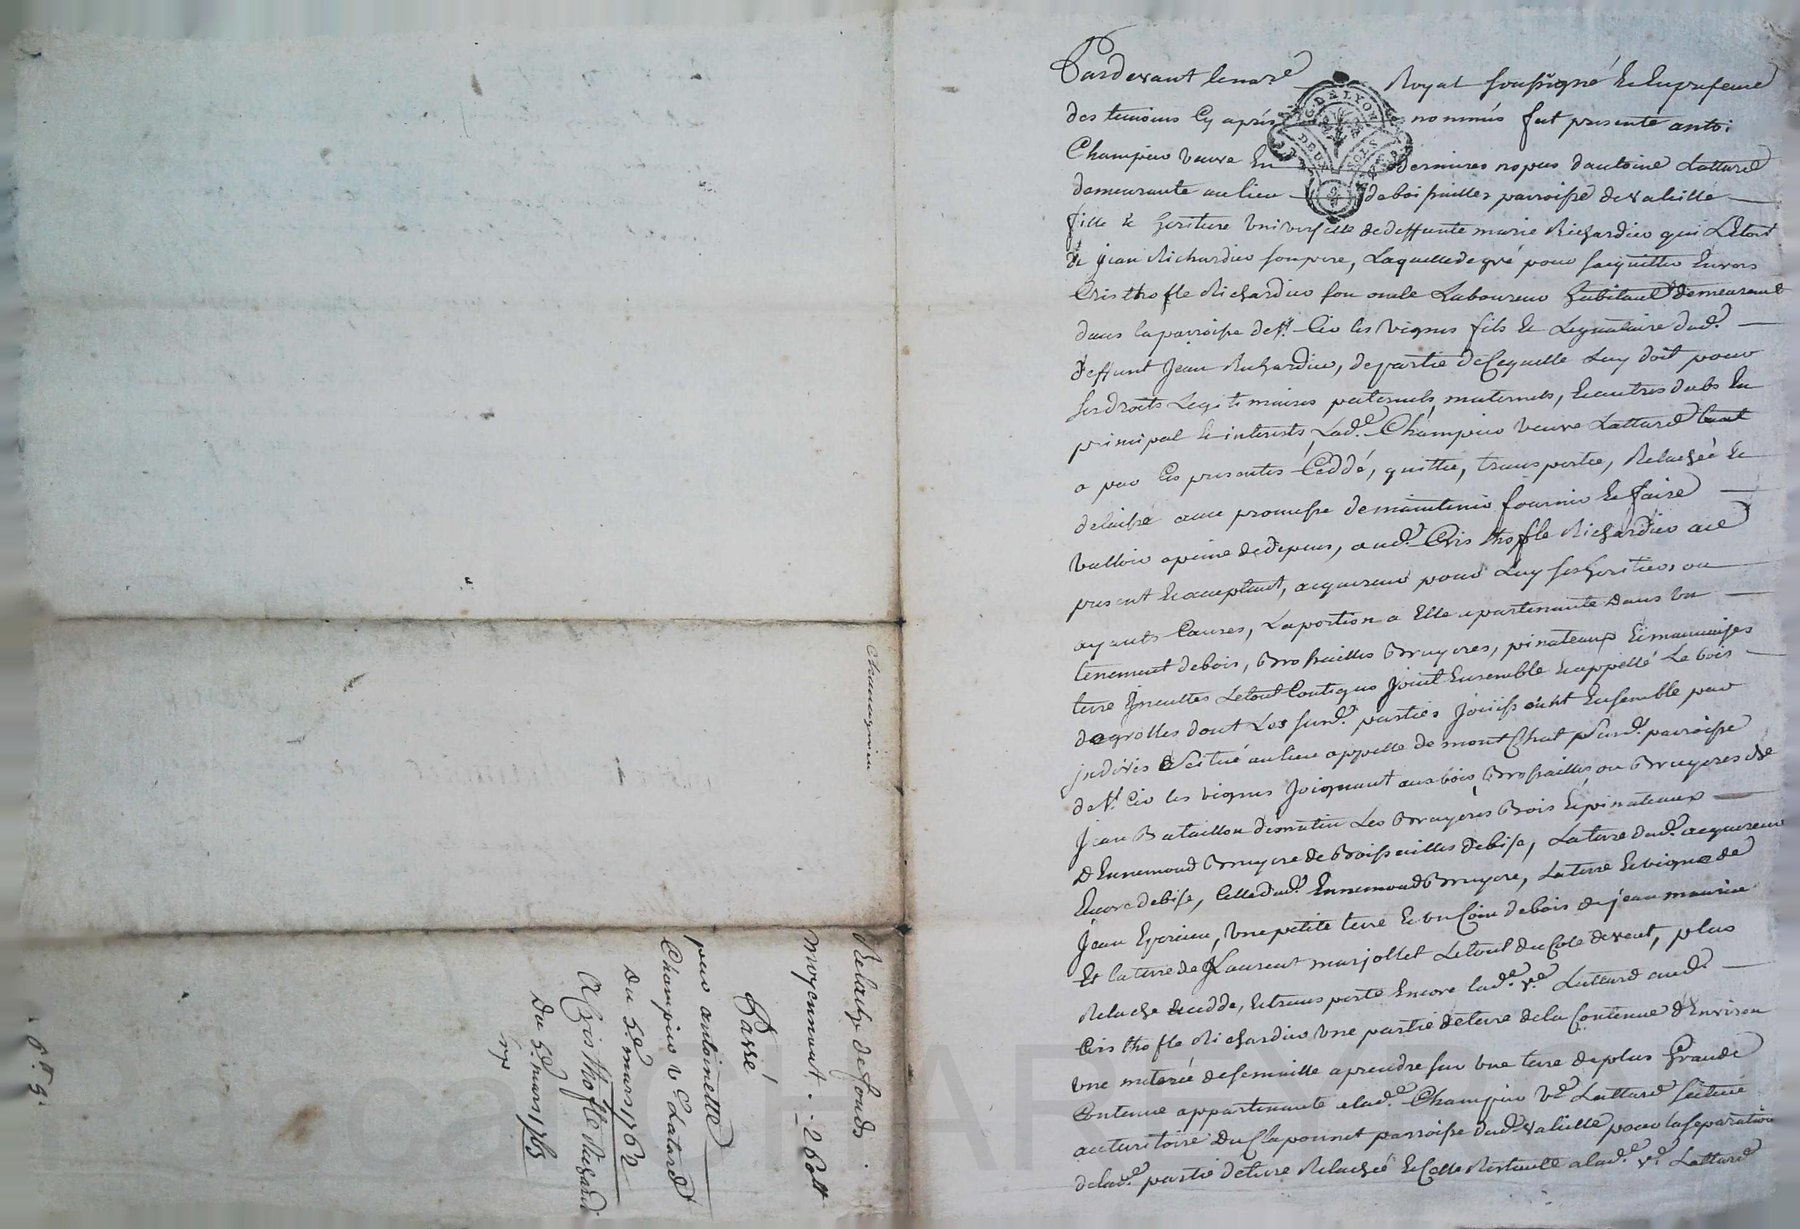 Pardevant le no.re Royal soussigné & en presence
des temoins cy après nommés fut presente antoi
Champier veuve en dernieres nopces d'antoine Lattard
demeurante au lieu de boissailles parroisse de valeille
fille & heritiere universelle de deffunte marie Richardier qui L'etoit
de jean Richardier son pere, Laquelle de gré pour s'acquitter envers
Cristhofle Richardier son oncle Laboureur habitant demeurant
dans la parroisse de st. Cir les vignes fils & Legataire dud.
deffunt Jean Richardier, de partie de Ce quelle Luy doit pour
ses droits Legitimaires paternels, maternels, & autres dubs en
principal & interests, Lad.e Champier veuve Lattard
a par Ces presentes Ceddé, quitté, transporté, Relaché &
delaissé avec promesse de maintenir fournir & faire
valloir a peine de depens, aud. Cris thofle Richardier
present & acceptant, acquereur pour Luy ses heritiers ou
ayants Causes, La portion a Elle apartenante dans un
tenement de bois, Brossailles Bruyeres, pinateaux & mauvaises
terre Incultes Le tout Contigus Joint Ensemble & appellé Le bois
de grolles dont Les susd. parties Jouissoient Ensemble par
indivis & scitué au lieu appellé de mont Chat susd. parroisse
de st. Cir les vignes Joignant aux bois Brossailles ou Bruyeres de
Jean Bataillon de matin Les Bruyeres Bois & pinateaux
D'Ennemond Bruyere de Boissailles de bise, La terre dud. acquereur
Encore de bise, Celle dud. Ennemond Bruyere, La terre & vigne de
Jean, une petite terre & un Coin de bois de jean maurice
Et la terre de Laurent marjollet Le tout du Coté de vent, plus
Relache & cedde, & transporte Encore lad.e v.e Lattard aud.
Cris thofle Richardier une partie de terre de la Contenue d'Environ
une meterée de semaille a prendre sur une terre de plus Grande
Contenue appartenante a lad.e Champier v.e Lattard scituée
au territoire Du Claponnet parroisse dud. valeille pour la separation
de lad.e partie de terre Relachée & Celle Restante a lad.e v.e Lattard
Relache de fonds.
moyennant . . 260 lt
Passé
par antoinette
Champier v.e Latard
Du 5.e mars 1762
A Cristhofle Richardi
Du 5.e mars 1765